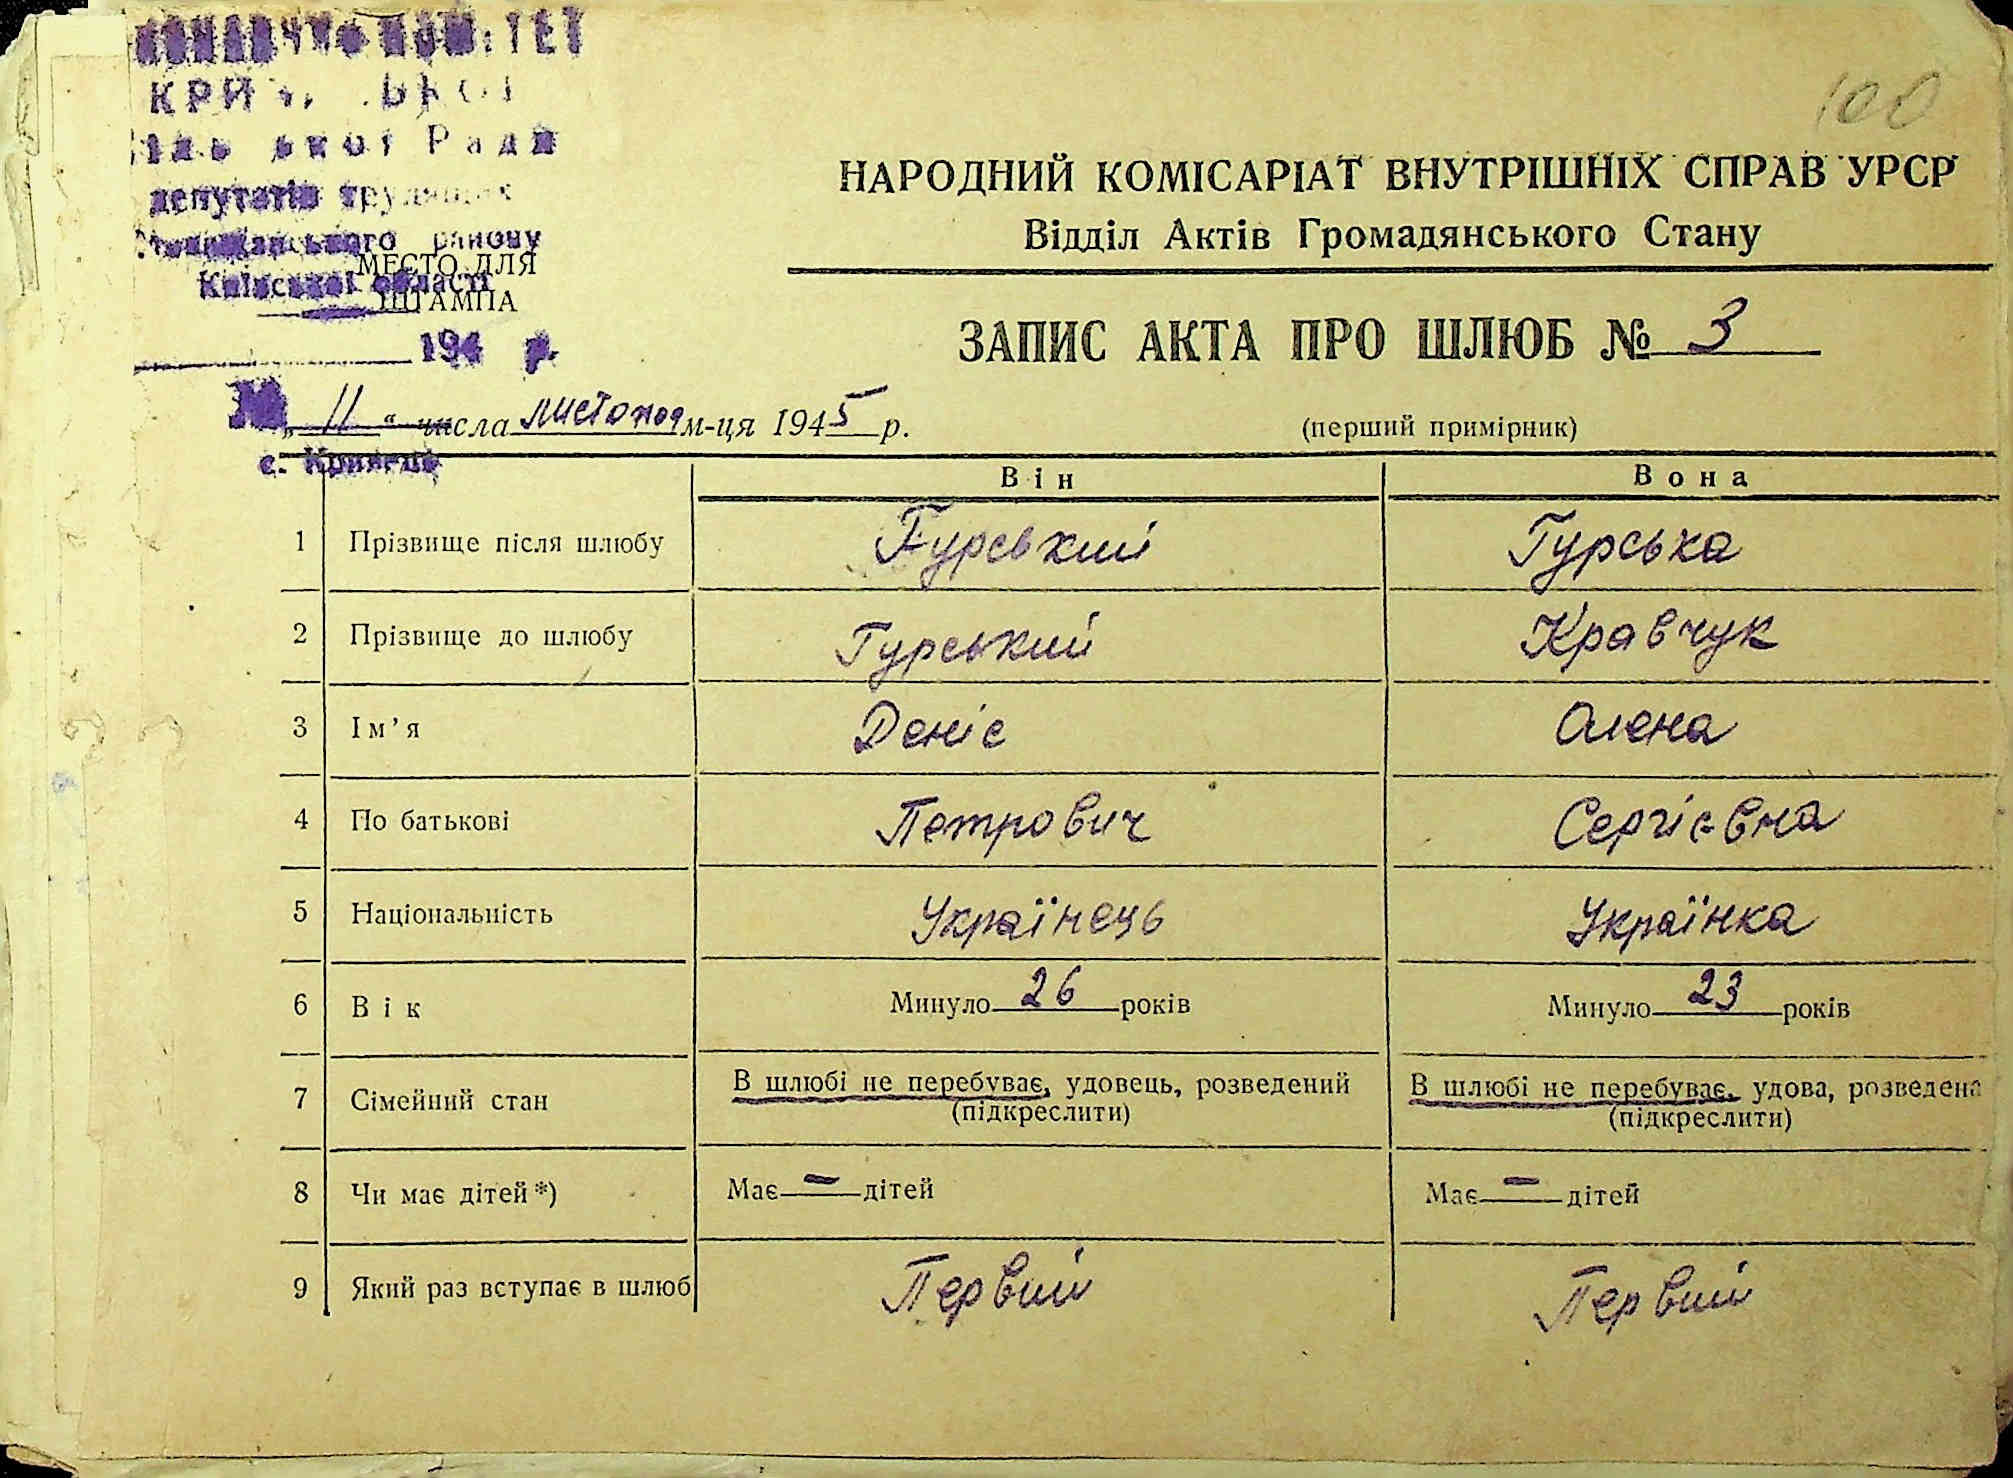 КОМІТЕТ
Ради
депутатів трудящих
району
Київської області
МЕСТО ДЛЯ
ШТАМПА
194 р.
с. Кривець
100
НАРОДНИЙ КОМІСАРІАТ ВНУТРІШНІХ СПРАВ УРСР
Відділ Актів Громадянського Стану
ЗАПИС АКТА ПРО ШЛЮБ № 3
„ 11 “ числа листопад м-ця 1945 р.
(перший примірник)
Він Вона
1 Прізвище після шлюбу Гурський Гурська
2 Прізвище до шлюбу Гурський Кравчук
3 Ім’я Деніс Олена
4 По батькові Петрович Сергієвна
5 Національність Українець Українка
6 Вік Минуло 26 років Минуло 23 років
7 Сімейний стан В шлюбі не перебуває, удовець, розведений (підкреслити) В шлюбі не перебуває, удова, розведена (підкреслити)
8 Чи має дітей*) Має — дітей Має — дітей
9 Який раз вступає в шлюб Первий Первий